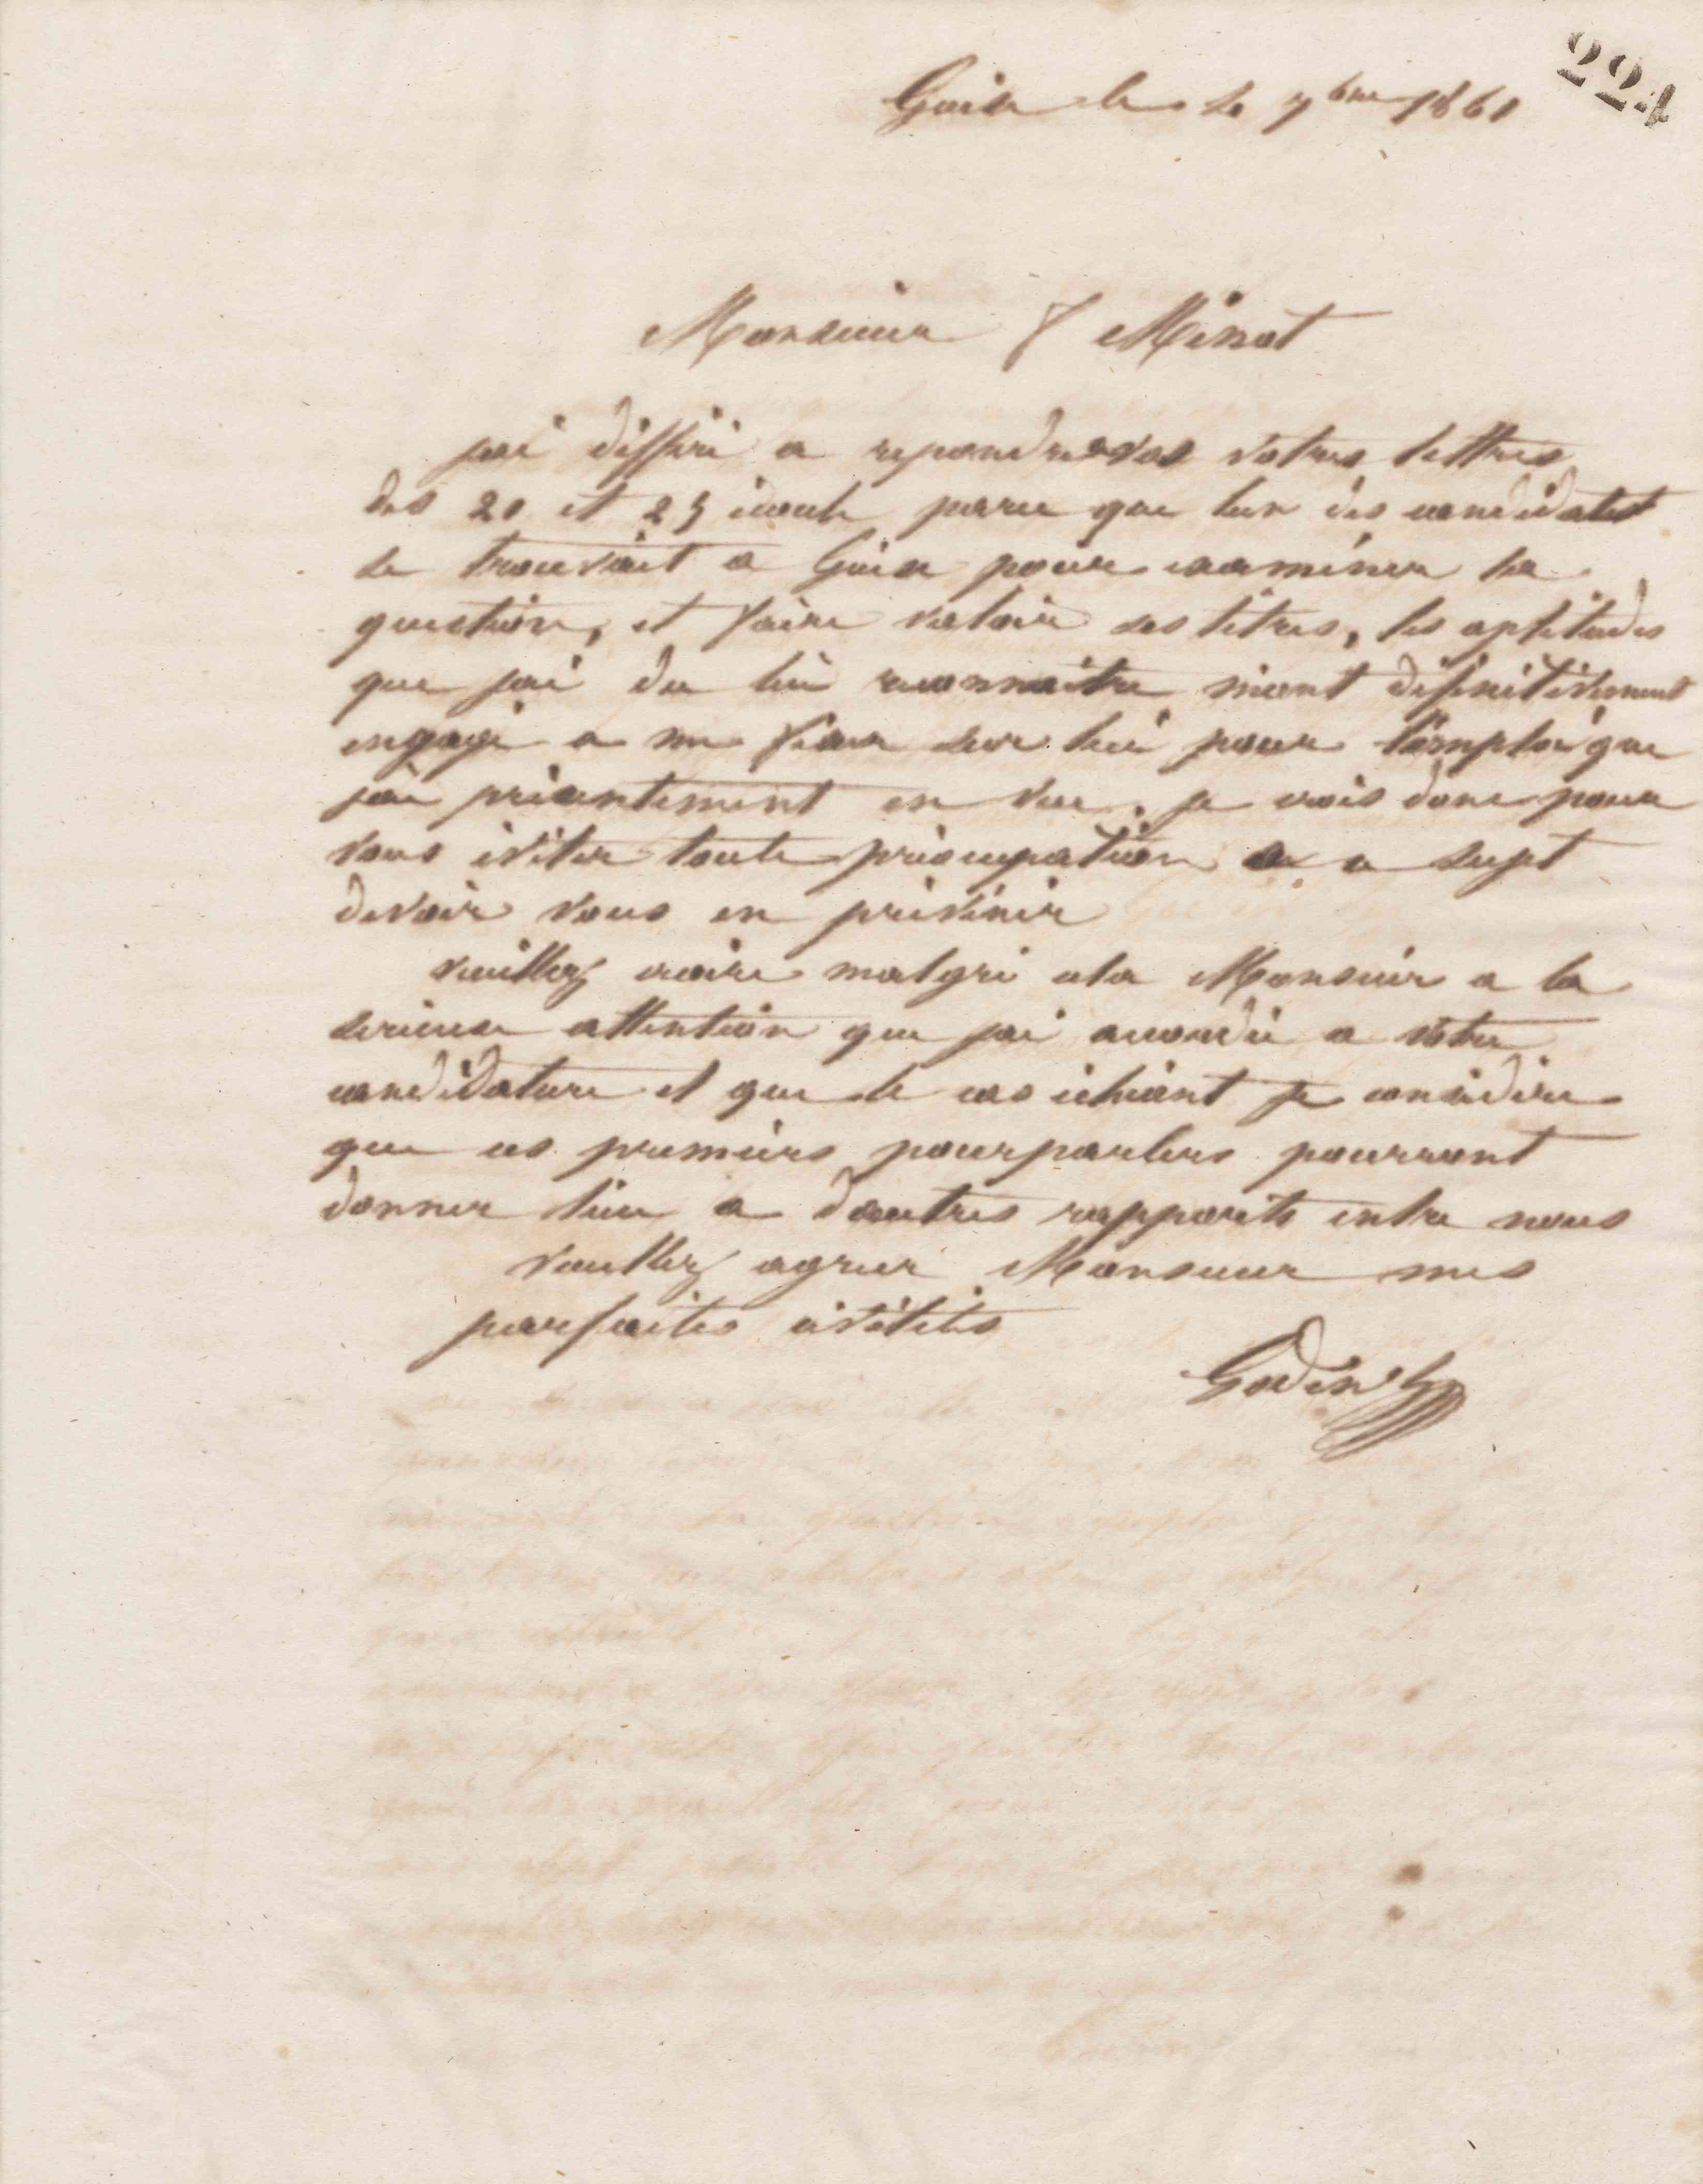 224
Guise le 7bre 1861
Monsieur Minot
jai différé a repondre vos votres lettres
des 20 et 25 écoulé parce que lun des candidats
se trouvait a Guise pour examiner la
question, et faire valoir ses titres, les aptitudes
que jai du lui reconnaitre mont définitivement
engagé a me fixer sur lui pour l'emploi que
jai présentement en vue. je crois donc pour
vous éviter toute préocupation a sujet
devoir vous en prévenir
veuillez croire malgré cela Monsieur a la
serieuse attention que jai accordée a votre
candidature et que le cas échéant je considère
que ces premiers pourparlers pourront
donner lieu a dautres rapports entre nous
veuillez agreer Monsieur mes
parfaites civilités
Godin